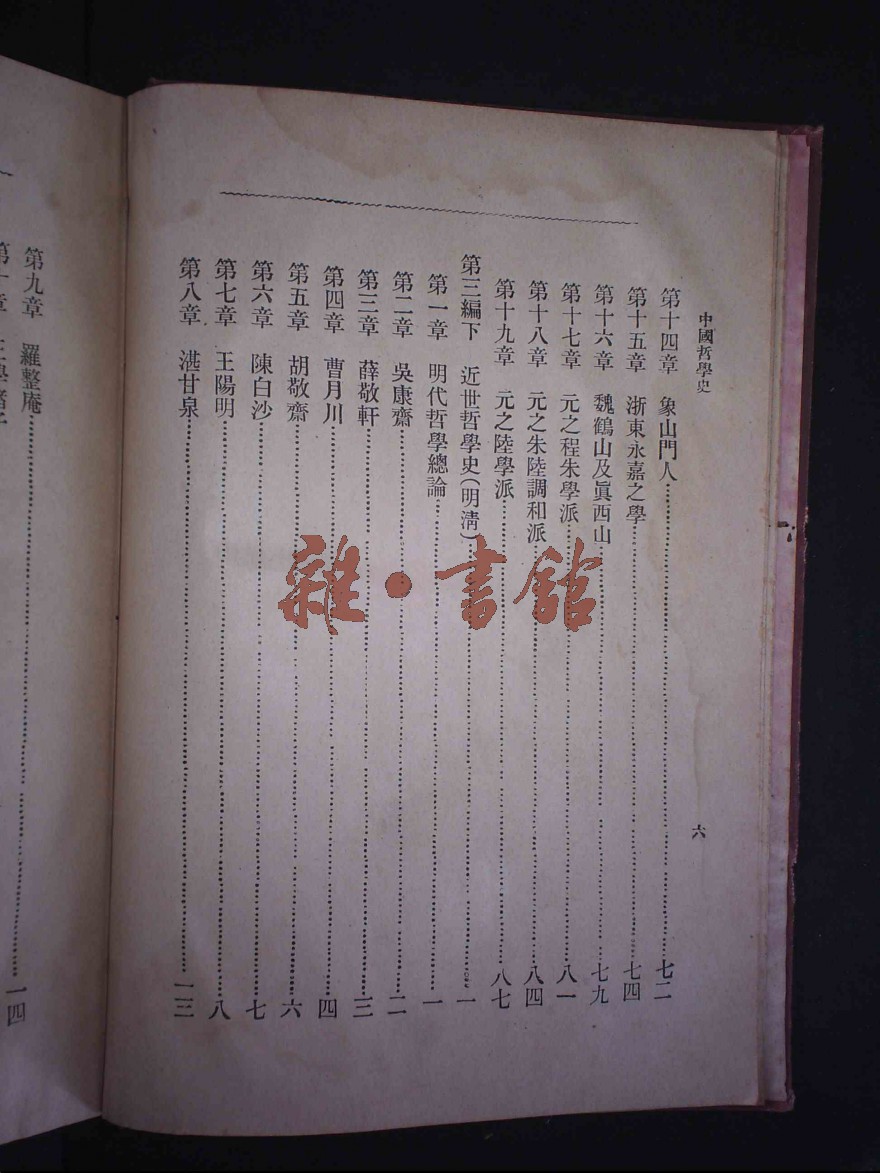 中國哲學史
六
第十四章 象山門人 七二
第十五章 浙東永嘉之學 七四
第十六章 魏鶴山及眞西山 七九
第十七章 元之程朱學派 八一
第十八章 元之朱陸調和派 八四
第十九章 元之陸學派 八七
第三編下 近世哲學史(明淸) 一
第一章 明代哲學總論 一
第二章 吳康齋 二
第三章 薛敬軒 三
第四章 曹月川 四
第五章 胡敬齋 六
第六章 陳白沙 七
第七章 王陽明 八
第八章 湛甘泉 一三
第九章 羅整庵 一四
雜·書館